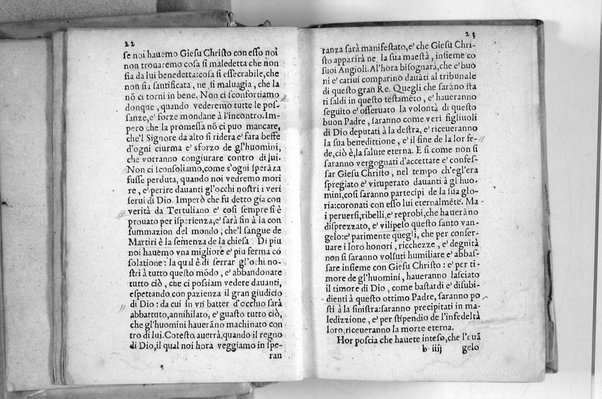 22
se noi hauemo Giesu Christo con esso noi
non trouaremo cosa sì maledetta che non
sia da lui benedetta: cosa sì essecrabile, che
non sia santificata, ne sì maluagia, che la
nõ ci torni in bene. Non ci isconfortiamo
donque, quando vederemo tutte le pos-
sanze, e' forze mondane à l'incontro. Im-
però che la promessa nõ ci puo mancare,
che'l Signore da alto si ridera e' fara beffe
d'ogni ciurma e' sforzo de gl'huomini,
che vorranno congiurare contro di lui.
Non ci isconsoliamo, come s'ogni speráza
fusse perduta, quando noi vedremo mori
re, e' perire dauanti gl'occhi nostri i veri
serui di Dio. Imperò che fu detto gia con
verità da Tertuliano e' così sempre si è
prouato per isperienza, e' sarà fin à la con
summazion del mondo, che'l sangue de
Martiri è la semenza de la chiesa Di piu
noi hauemo vna migliore e' piu ferma cõ
solatione: la qual'è di ferrar gl'occhi no-
stri à tutto questo mõdo, e' abbandonare
tutto ciò, che ci possiam vedere dauanti,
espettando con pazienza il gran giudicio
di Dio: da cui in vn batter d'occhio sarà
abbattuto, annihilato, e' guasto tutto ciò,
che gl'huomini haueràno machinato con
tro di lui. Cotesto auerrà, quando il regno
di Dio, il qual noi hora veggiamo in spe-
ran
23
ranza sarà manifestato, e' che Giesu Chri-
sto apparirà ne la sua maestà, insieme co
suoi Angioli. Al'hora bisognarà, che' buo
ni e' catiui comparino dauati al tribunale
di questo gran Re. Quegli che saràno sta
ti saldi in questo testamẽto, e' haueranno
seguito e' osseruato la volontà di questo
buon Padre, saranno come veri figliuoli
di Dio deputati à la destra, e' riceueranno
la sua benedittione, e' il fine de la lor fe-
de, ciò è, la salute eterna. E si come non si
saranno vergognati d'accettare e' confes-
sar Giesu Christo, nel tempo ch'egl'era
spregiato e' vituperato dauanti à gl huo-
mini, così saranno partecipi de la sua glo-
ria: coronati con esso lui eternalmẽte. Ma
i peruersi, ribelli, e' reprobi, che haueràno
disprezzato, e' vilipeso questo santo van-
gelo: e' parimente quegli, che per conser-
uare i loro honori, ricchezze, e' degnità
non si saranno volsuti humiliare e' abbas-
sare insieme con Giesu Christo: e' per ti-
more de gl'huomini, haueranno lasciato
il timore di Dio, come bastardi e' disubi-
dienti à questo ottimo Padre, saranno po
sti à la sinistra: saranno precipitati in ma-
ledizzione, e' per stipendio de l'infedeltà
loro, riceueranno la morte eterna.
Hor poscia che hauete inteso, che l'euã
b iiij gelo